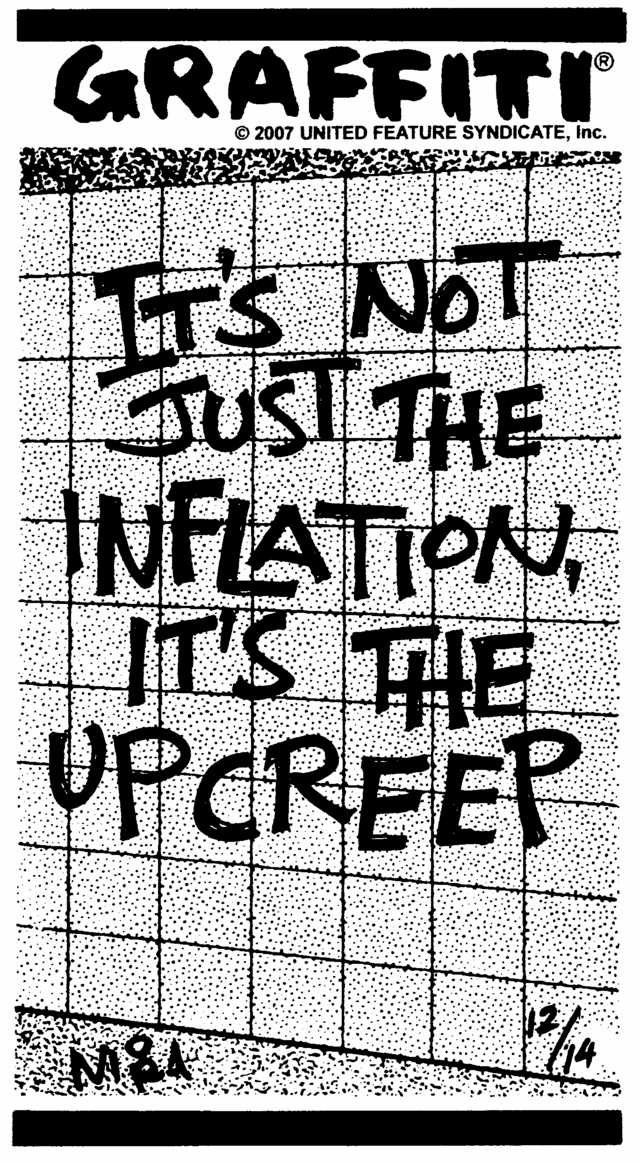 GRAFFITI®
© 2007 UNITED FEATURE SYNDICATE, Inc.
IT'S NOT
JUST THE
INFLATION,
IT'S THE
UPCREEP
12/14